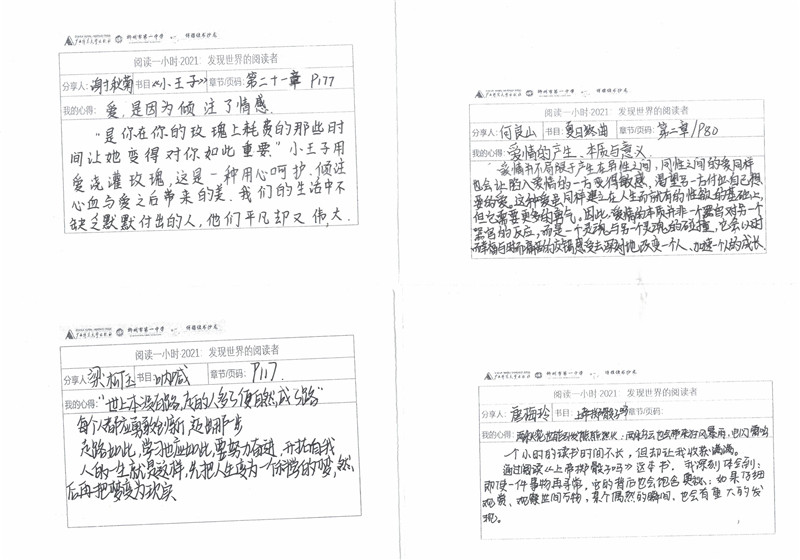 广西师范大学出版社 柳州市第一中学
阅读一小时2021：发现世界的阅读者
分享人：谢秋菊 书目：《小王子》 章节/页码：第二十一章 P177
我的心得：爱，是因为倾注了情感
“是你在你的玫瑰上耗费的那些时
间让她变得对你如此重要”小王子用
爱浇灌玫瑰，这是一种用心呵护、倾注
心血与爱之后带来的美。我们的生活中不
缺乏默默付出的人，他们平凡却又伟大。
柳州市第一中学
阅读一小时2021：发现世界的阅读者
分享人：何良山 书目：夏日终曲 章节/页码：第二章/P80
我的心得：爱情的产生、本质与意义
爱情并不局限于产生在异性之间，同性之间的爱同样
也会让陷入爱情的一方变得敏感，渴望另一方付出自己想
要的爱。这种爱是同样建立在人生而就有的性欲的基础上，
但它需要更多的勇气。因此，爱情的本质并非一个器官对另一个
器官的反应，而是一个灵魂与另一个灵魂的碰撞，它会以
去深刻地改变一个人、加速个人的成长
柳州市第一中学
阅读一小时2021：发现世界的阅读者
分享人： 书目：呐喊 章节/页码：P117
我的心得：“世上本没有路，走的人多了便自然成了路”
每个人都应勇敢创新，走出那一步
走路如此，学习也应如此，要努力奋进，开拓自我
人的一生就是这样，先把人生变为一个的梦，然
后再把梦变为现实
柳州市第一中学
阅读一小时2021：发现世界的阅读者
分享人：唐海玲 书目：上帝掷骰子吗 章节/页码：
我的心得：
一个小时的读书时间不长，但却让我收获满满。
通过阅读《上帝掷骰子吗》这本书，我深刻体会到：
即使一件事物再寻常，它的背后也会饱含奥秘；如果仔细
观察、观察世间万物，某个偶然的瞬间，也会有重大的发
现。